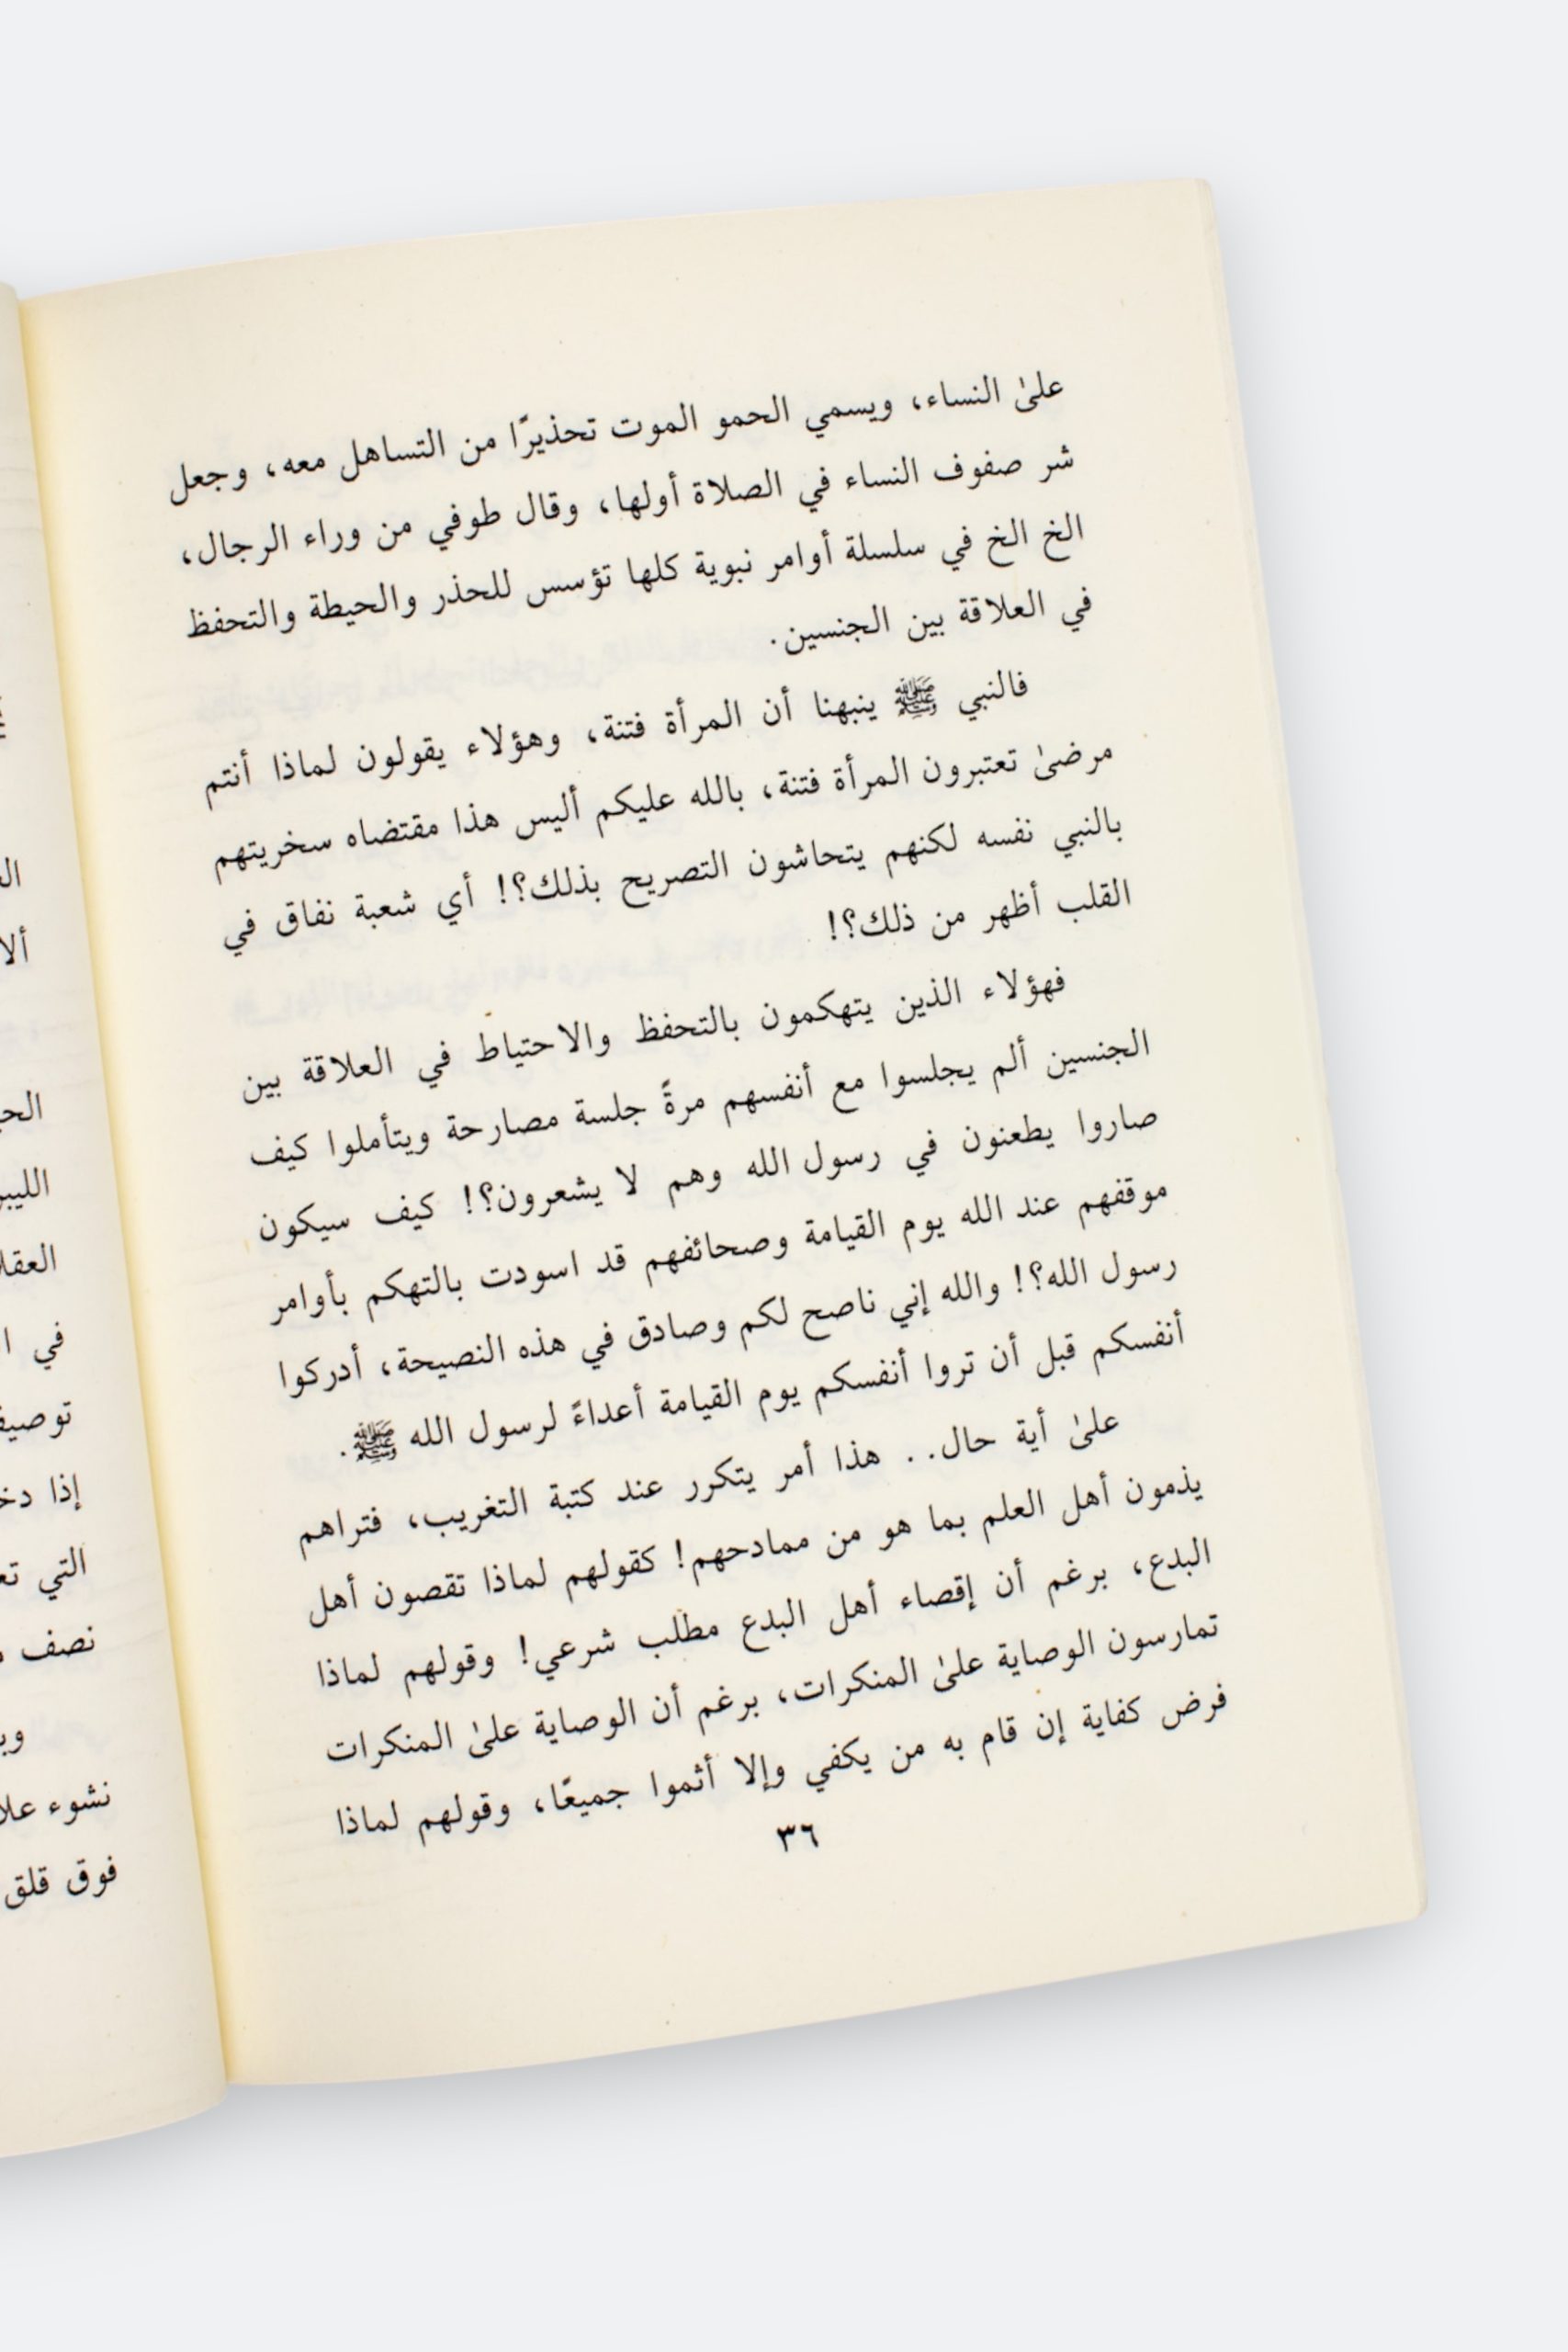 علىٰ النساء، ويسمي الحمو الموت تحذيرًا من التساهل معه، وجعل
شر صفوف النساء في الصلاة أولها، وقال طوفي من وراء الرجال،
الخ الخ في سلسلة أوامر نبوية كلها تؤسس للحذر والحيطة والتحفظ
في العلاقة بين الجنسين.
فالنبي ﷺ ينبهنا أن المرأة فتنة، وهؤلاء يقولون لماذا أنتم
مرضىٰ تعتبرون المرأة فتنة، بالله عليكم أليس هذا مقتضاه سخريتهم
بالنبي نفسه لكنهم يتحاشون التصريح بذلك؟! أي شعبة نفاق في
القلب أظهر من ذلك؟!
فهؤلاء الذين يتهكمون بالتحفظ والاحتياط في العلاقة بين
الجنسين ألم يجلسوا مع أنفسهم مرةً جلسة مصارحة ويتأملوا كيف
صاروا يطعنون في رسول الله وهم لا يشعرون؟! كيف سيكون
موقفهم عند الله يوم القيامة وصحائفهم قد اسودت بالتهكم بأوامر
رسول الله؟! والله إني ناصح لكم وصادق في هذه النصيحة، أدركوا
أنفسكم قبل أن تروا أنفسكم يوم القيامة أعداءً لرسول الله ﷺ.
علىٰ أية حال.. هذا أمر يتكرر عند كتبة التغريب، فتراهم
يذمون أهل العلم بما هو من ممادحهم! كقولهم لماذا تقصون أهل
البدع، برغم أن إقصاء أهل البدع مطلب شرعي! وقولهم لماذا
تمارسون الوصاية علىٰ المنكرات، برغم أن الوصاية علىٰ المنكرات
فرض كفاية إن قام به من يكفي وإلا أثموا جميعًا، وقولهم لماذا
٣٦
في
إذا
التي
نصف
نشوء
فوق قلق